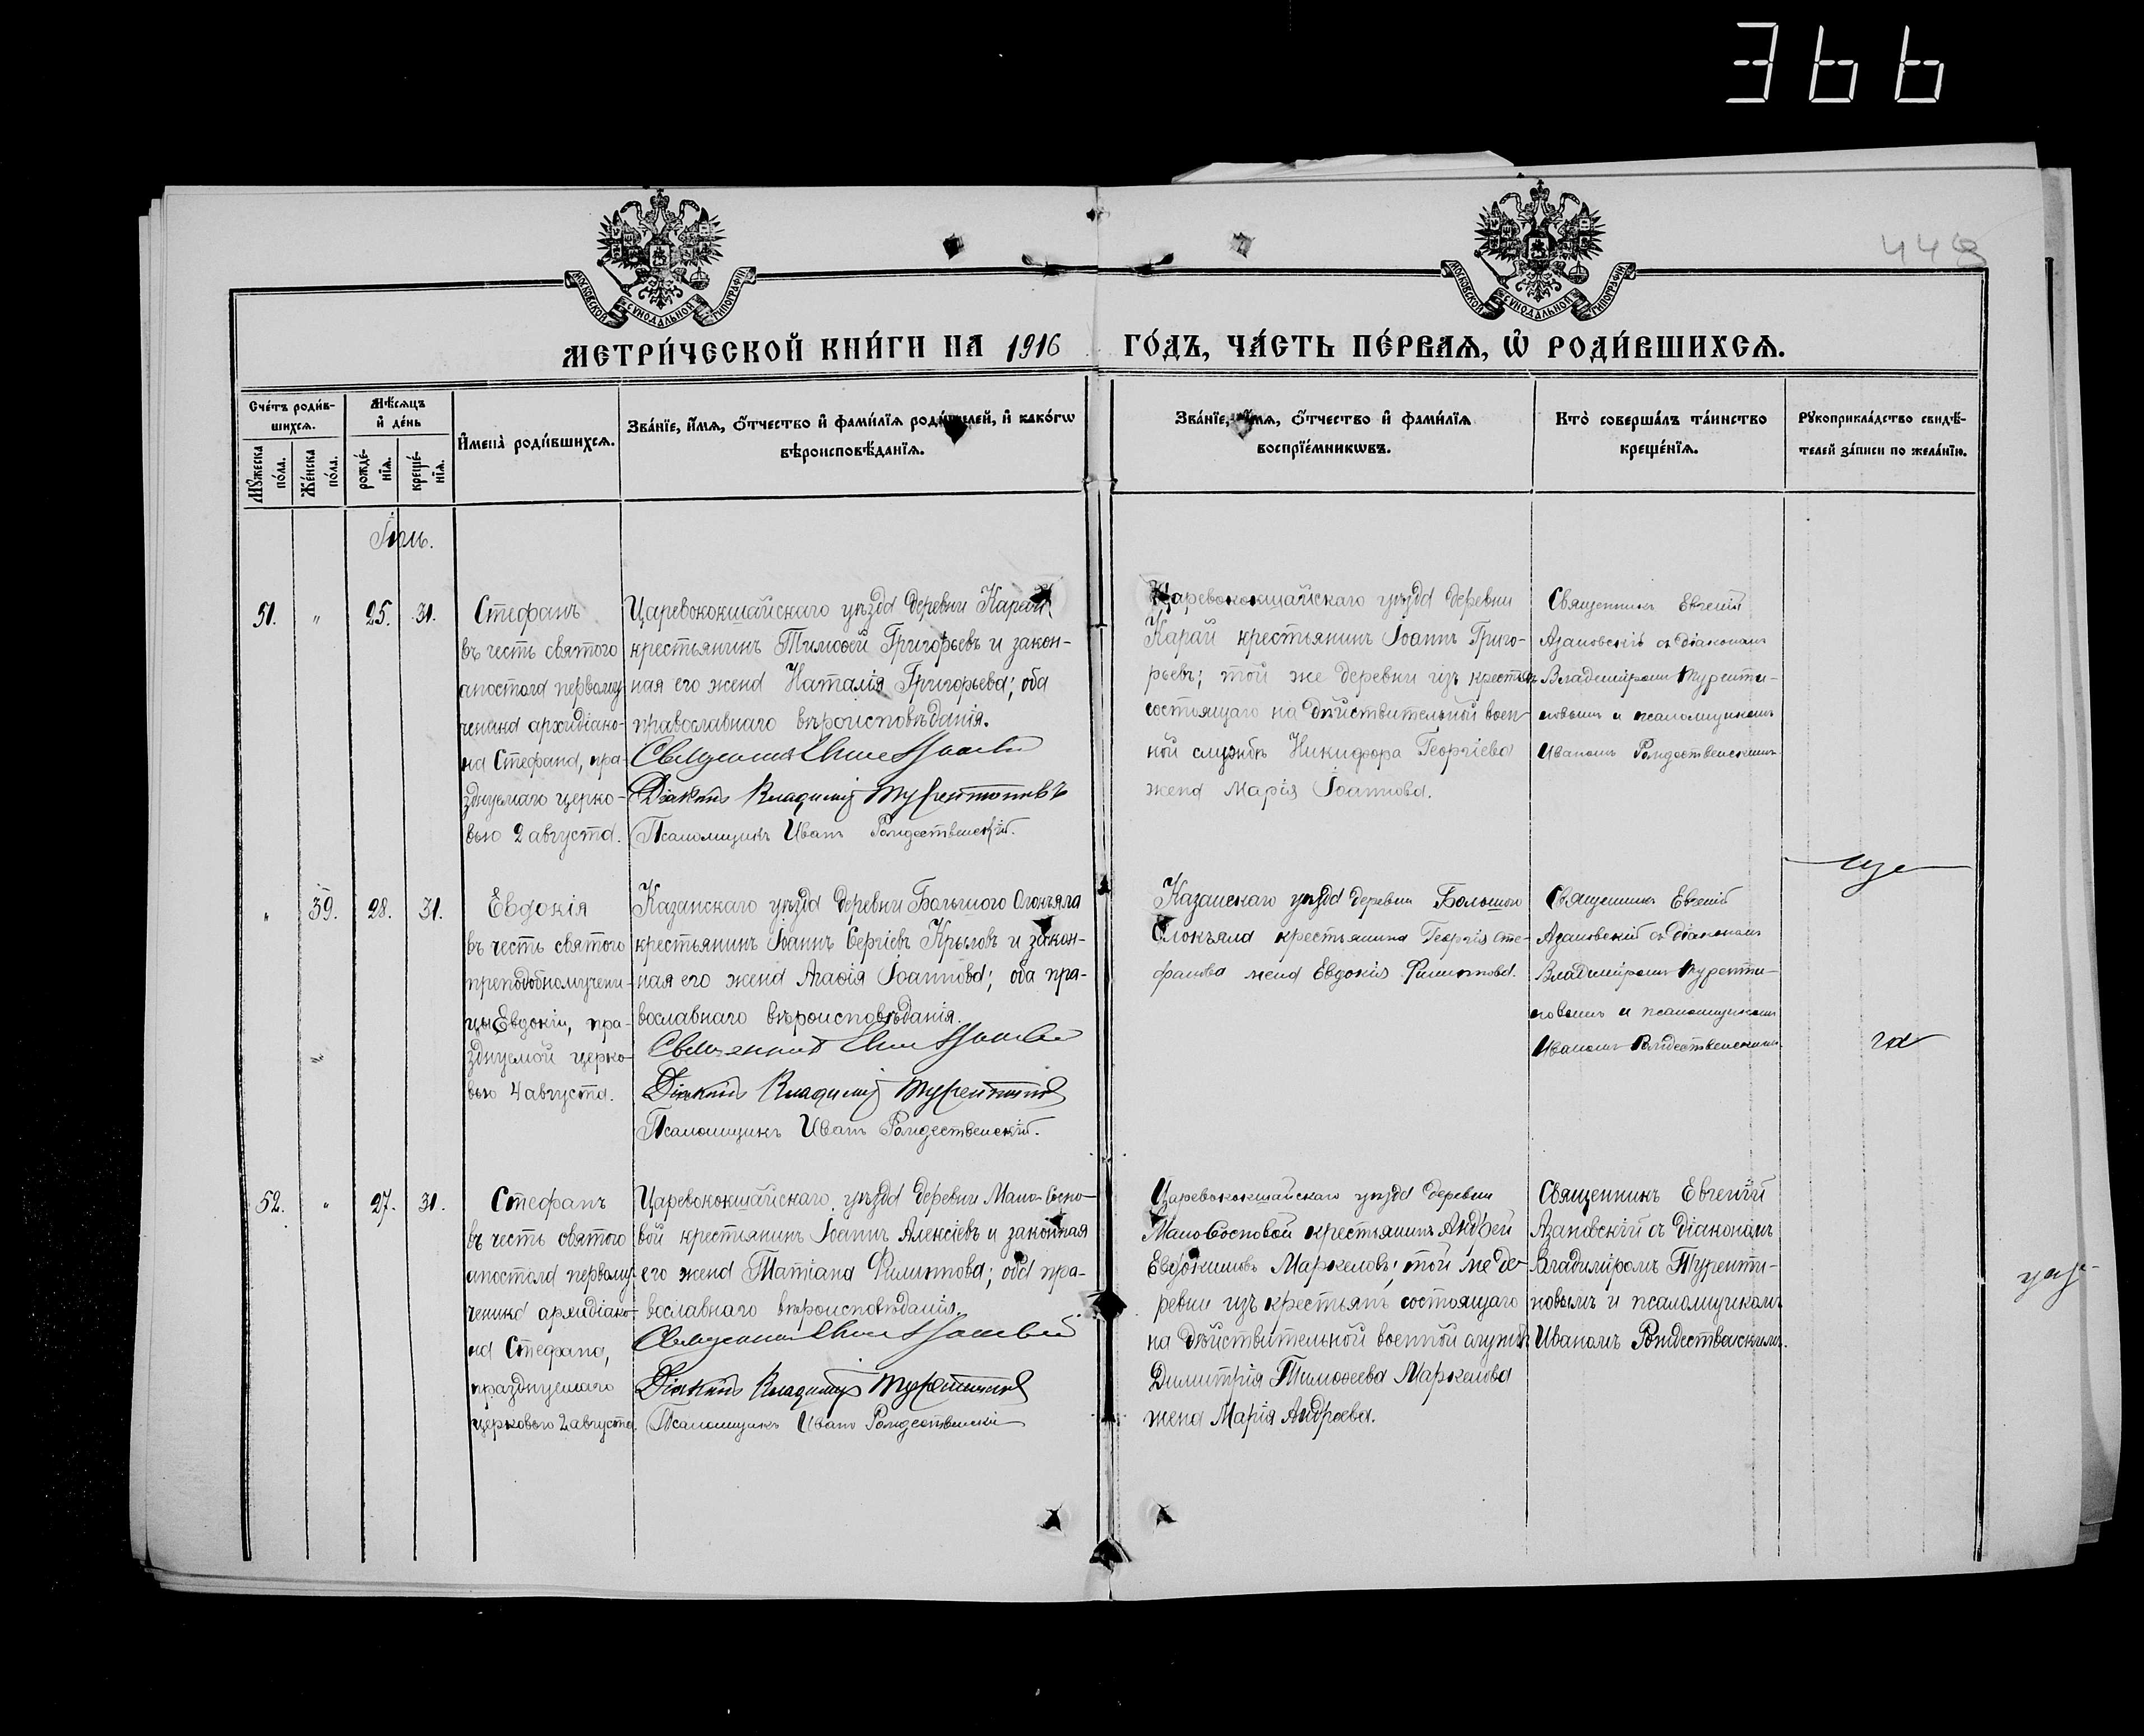 366
448
МОСКОВСКОЙ СѴНОДАЛЬНОЙ ТИПОГРАФІИ
МОСКОВСКОЙ СѴНОДАЛЬНОЙ ТИПОГРАФІИ
МЕТРИ́ЧЕСКОЙ КНИ́ГИ НА 1916 ГО́ДЪ, ЧА́СТЬ ПЕ́РВАѦ, Ѡ҆ РОДИ́ВШИХСѦ.
Сче́тъ роди́в-
шихсѧ.
Мꙋ́жеска по́ла.
Же́нска по́ла.
Мѣ́сѧцъ
и҆ де́нь
рожде́-
нїѧ.
креще́-
нїѧ.
И҆мена̀ роди́вшихсѧ.
Зва́нїе, и҆́мѧ, ѻ҆́тчество и҆ фами́лїѧ роди́телей, и҆ како́гѡ
вѣроисповѣ́данїѧ.
Зва́нїе, и҆́мѧ, ѻ҆́тчество и҆ фами́лїѧ
воспрїе́мникѡвъ.
Кто̀ соверша́лъ та́инство
креще́нїѧ.
Рꙋкоприкла́дство свидѣ́-
телей за́писи по жела́нїю.
Іюль.
51. " 25. 31.
Стефанъ
въ честь святого
апостола первому-
ченика архидіако-
на Стефана, пра-
зднуемаго церко-
вью 2 августа.
Царевококшайскаго уѣзда деревни Карай
крестьянинъ Тимоѳей Григорьевъ и закон-
ная его жена Наталія Григорьева; оба
православнаго вѣроисповѣданія.
Священникъ
Діаконъ Владимиръ Турентиновъ
Псаломщикъ Иванъ Рождественскій.
Царевококшайскаго уѣзда деревни
Карай крестьянинъ Іоаннъ Григо-
рьевъ; той же деревни изъ крестьянъ
состоящаго на дѣйствительной воен-
ной службѣ Никифора Георгіева
жена Марія Іоаннова.
Священникъ Евгеній
Азановскій съ діакономъ
Владиміромъ Туренти-
новымъ и псаломщикомъ
Иваномъ Рождественскимъ.
" 39. 28. 31.
Евдокія
въ честь святого
преподобномучени-
цы Евдокіи, пра-
зднуемой церко-
вью 4 августа.
Казанскаго уѣзда деревни Большого Олокъяла
крестьянинъ Іоаннъ Сергіевъ Крыловъ и закон-
ная его жена Агаѳія Іоаннова; оба пра-
вославнаго вѣроисповѣданія.
Священникъ
Діаконъ Владимиръ Турентиновъ
Псаломщикъ Иванъ Рождественскій.
Казанскаго уѣзда деревни Большого
Олокъяла крестьянина Георгія Сте-
фанова жена Евдокія Филиппова.
Священникъ Евгеній
Азановскій съ діакономъ
Владиміромъ Туренти-
новымъ и псаломщикомъ
Иваномъ Рождественскимъ.
52. " 27. 31.
Стефанъ
въ честь святого
апостола первому-
ченика архидіако-
на Стефана,
празднуемаго
церковью 2 августа.
Царевококшайскаго уѣзда деревни Мало-Сосно-
вой крестьянинъ Іоаннъ Алексіевъ и законная
его жена Татіана Филиппова; оба пра-
вославнаго вѣроисповѣданія.
Священникъ
Діаконъ Владимиръ Турентиновъ
Псаломщикъ Иванъ Рождественскій
Царевококшайскаго уѣзда деревни
Мало-Сосновой крестьянинъ Андрей
Евдокимовъ Маркеловъ; той же де-
ревни изъ крестьянъ состоящаго
на дѣйствительной военной службѣ
Димитрія Тимоѳеева Маркелова
жена Марія Андреева.
Священникъ Евгеній
Азановскій съ діакономъ
Владиміромъ Туренти-
новымъ и псаломщикомъ
Иваномъ Рождественскимъ.